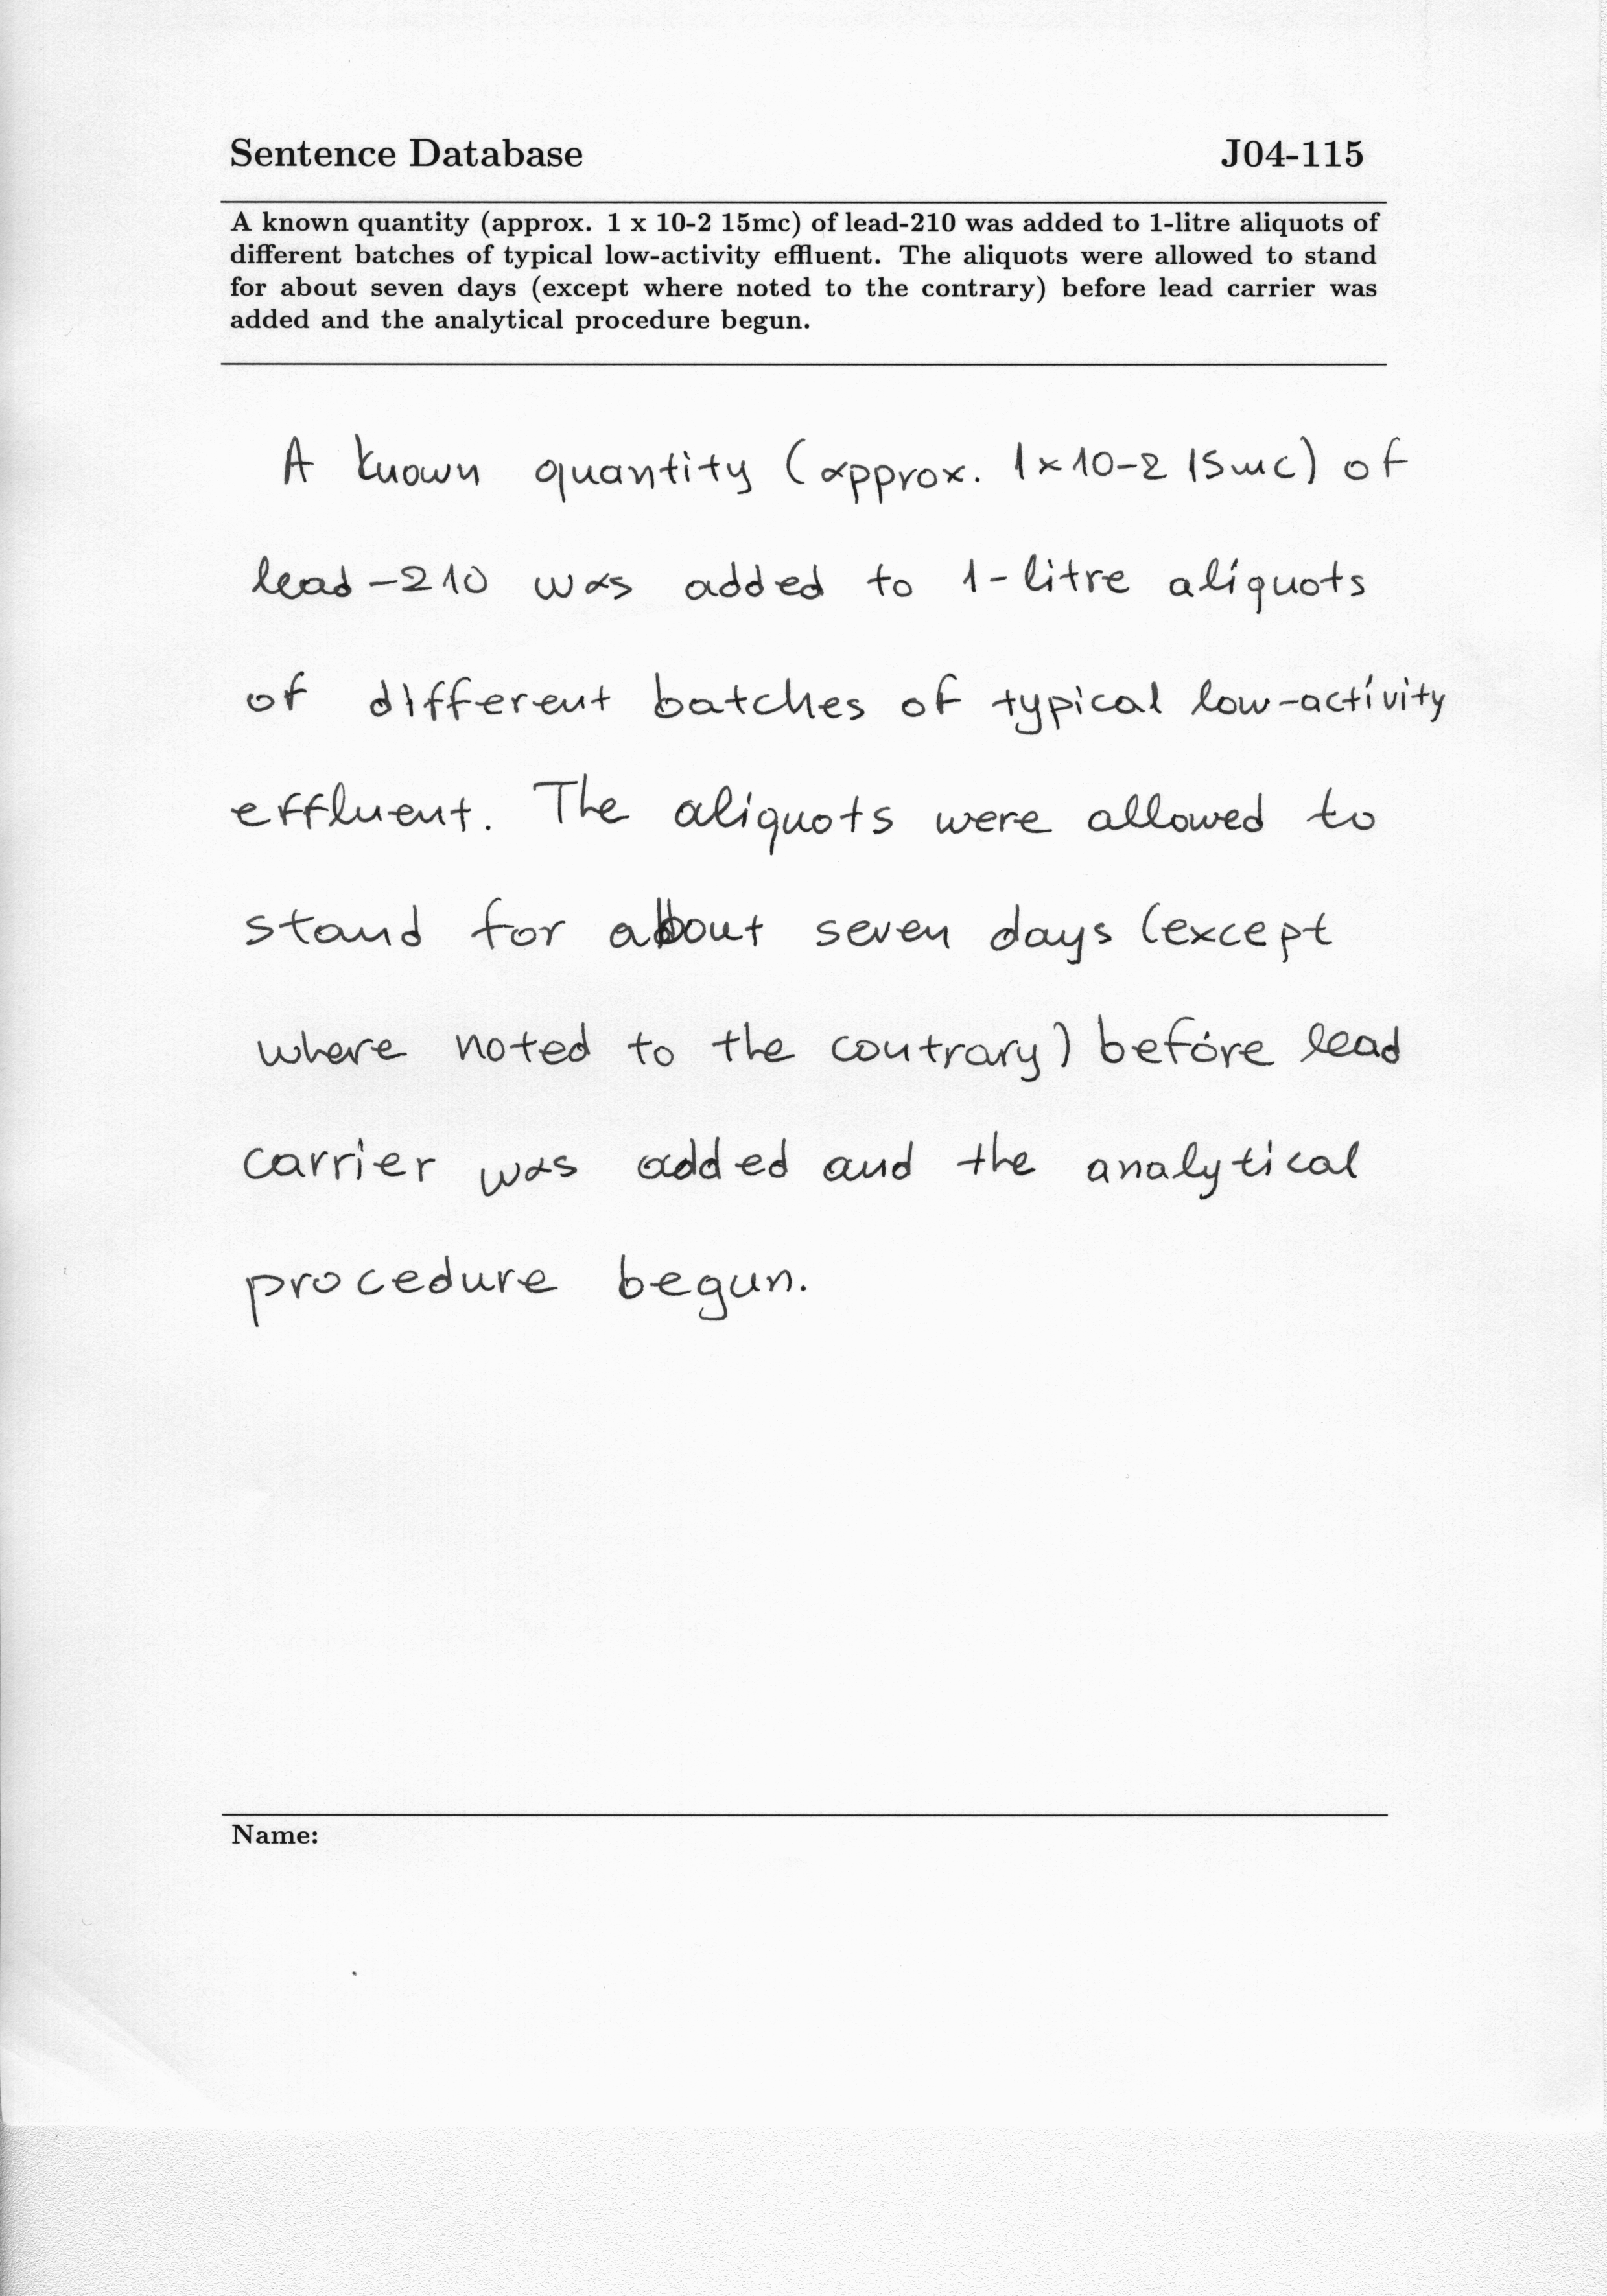 Sentence Database J04-115
A known quantity (approx. 1 x 10-2 15mc) of lead-210 was added to 1-litre aliquots of
different batches of typical low-activity effluent. The aliquots were allowed to stand
for about seven days (except where noted to the contrary) before lead carrier was
added and the analytical procedure begun.
A known quantity (approx. 1x10-2 15mc) of
lead-210 was added to 1-litre aliquots
of different batches of typical low-activity
effluent. The aliquots were allowed to
stand for about seven days (except
where noted to the contrary) before lead
carrier was added and the analytical
procedure begun.
Name: